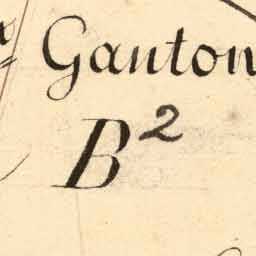 Ganton
B²